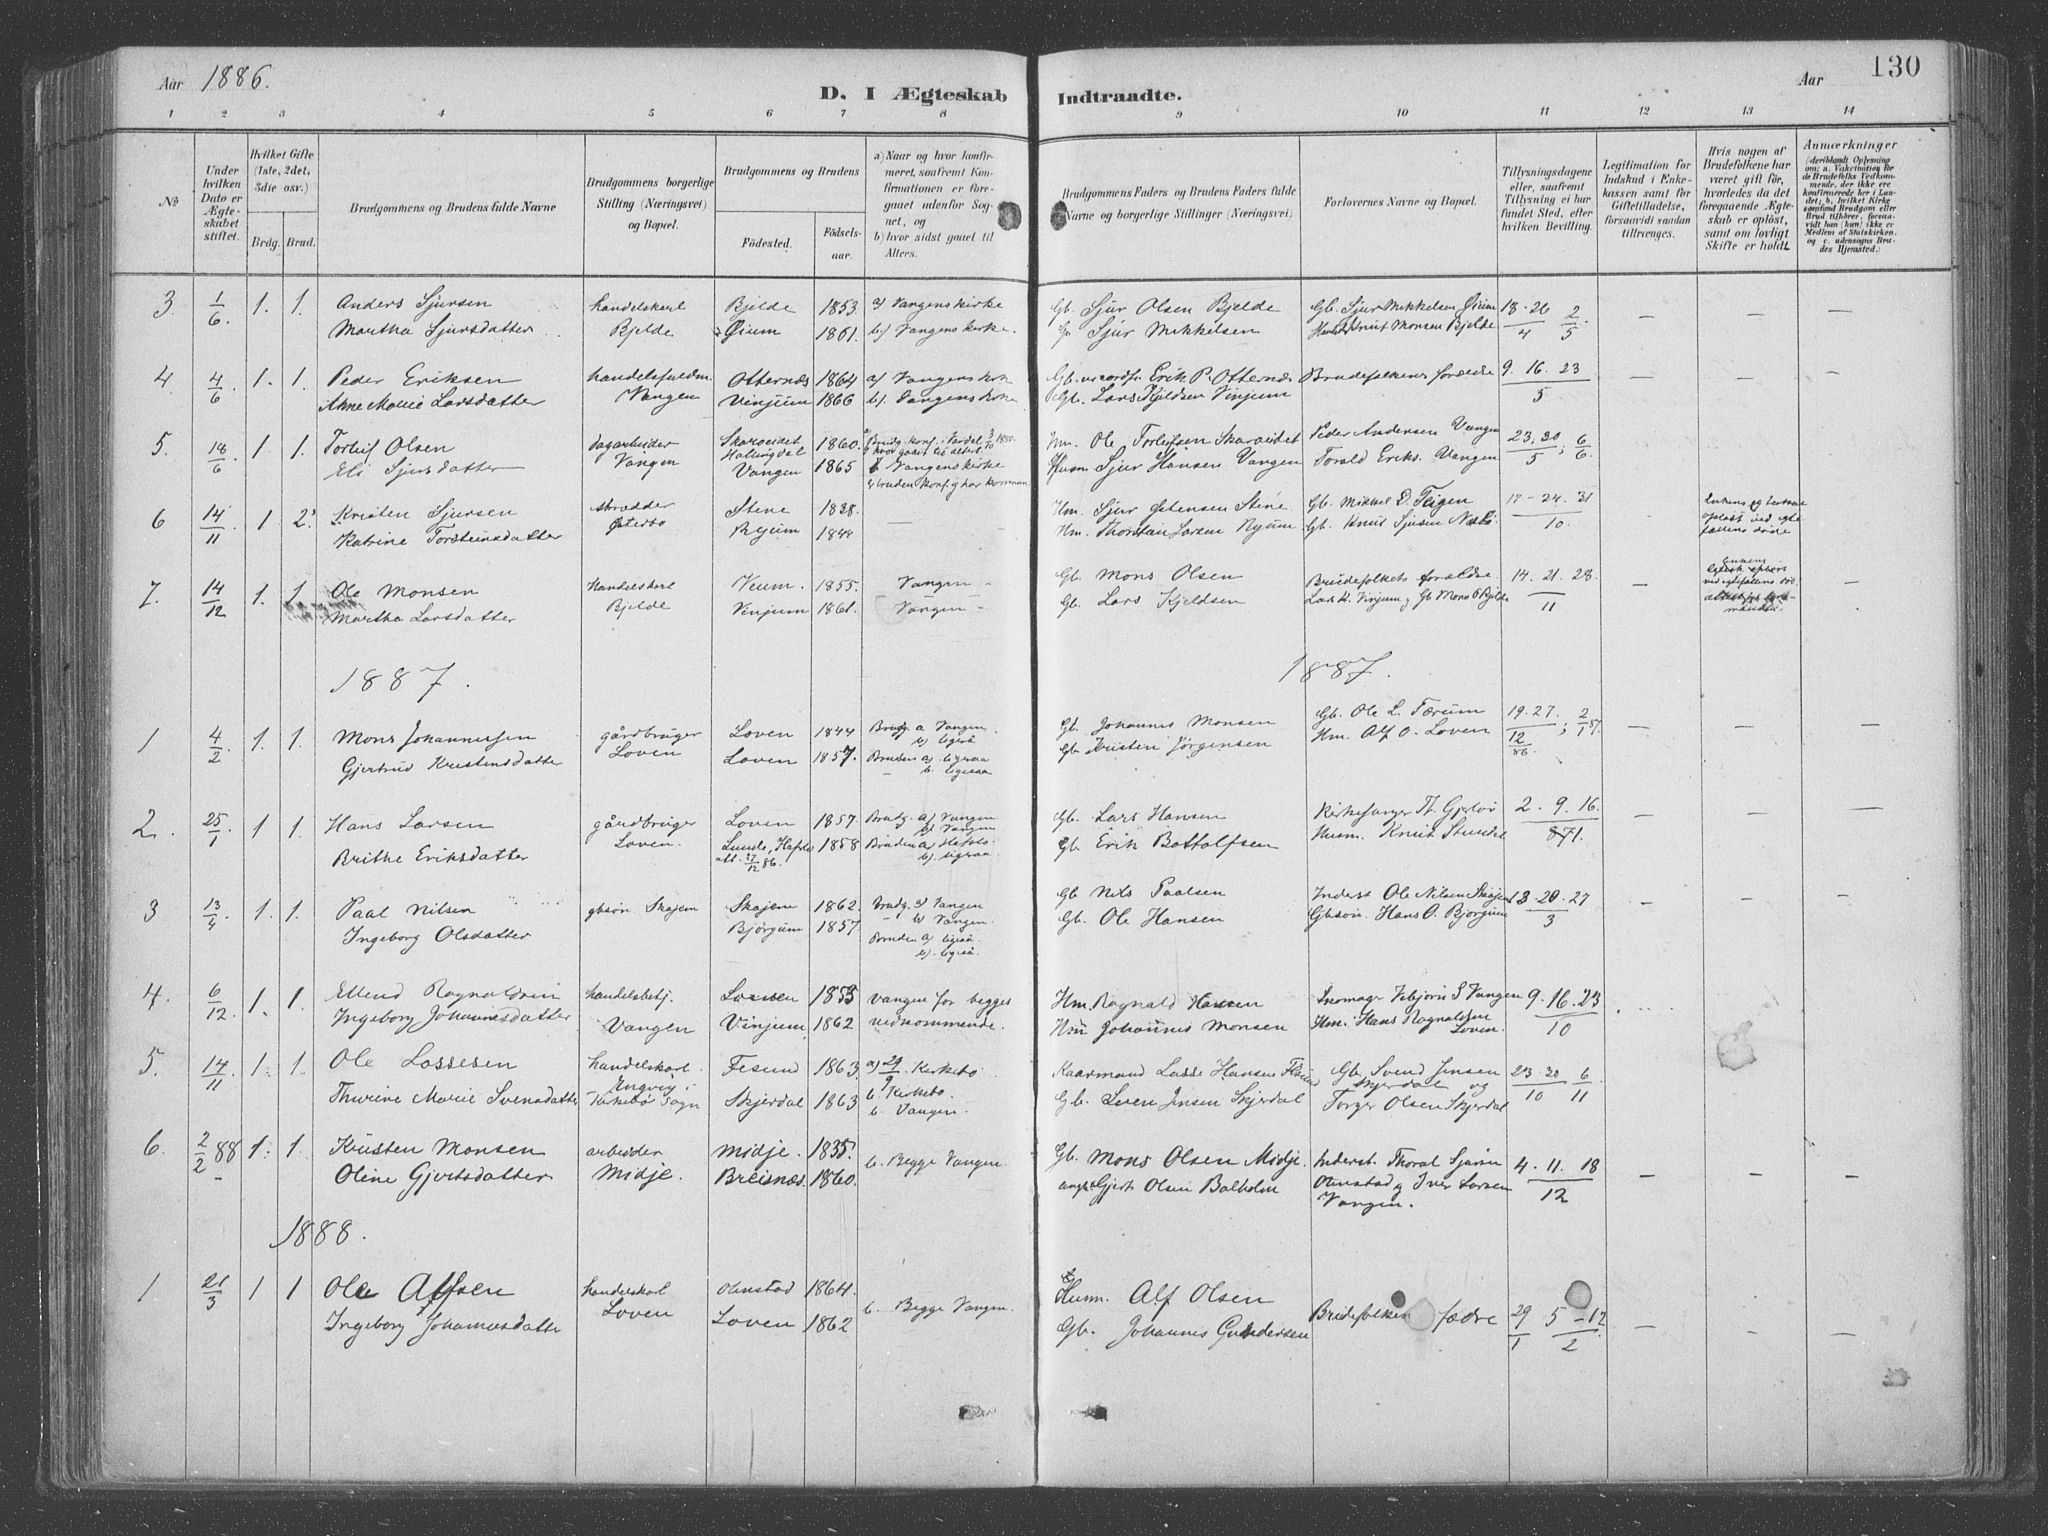 Aar 1886.
D. I Ægteskab Indtraadte.
Aar
130
1 2 3 4 5 6 7 8 9 10 11 12 13 14
No
Under hvilken Dato er Ægteskabet stiftet.
Hvilket Gifte (1ste, 2det, 3die osv.)
Brdg. Brud.
Brudgommens og Brudens fulde Navne
Brudgommens borgerlige Stilling (Næringsvei) og Bopæl.
Brudgommens og Brudens
Födested. Födselsaar.
a) Naar og hvor konfirmeret, saafremt Konfirmationen er foregaaet udenfor Sognet, og
b) hvor sidst gaaet til Alters.
Brudgommens Faders og Brudens Faders fulde Navne og borgerlige Stillinger (Næringsvei)
Forlovernes Navne og Bopæl.
Tillysningsdagene eller, saafremt Tillysning ei har fundet Sted, efter hvilken Bevilling.
Legitimation for Indskud i Enkekassen samt for Giftetilladelse, forsaavidt saadan tiltrænges.
Hvis nogen af Brudefolkene har været gift för, hvorledes da det foregaaende Ægteskab er oplöst, samt om lovligt Skifte er holdt.
Anmærkninger
3 1/6 1. 1. Anders Sjursen handelskarl Bjelde 1853 a) Vangens kirke Gb. Sjur Olsen Bjelde Gb. Sjur Mikkelsen Øium 18-26/4 2/5
Martha Sjursdatter Bjelde Øium 1861. b) Vangens kirke. Sjur Mikkelsen Knut Monsen Bjelde
4 4/6 1. 1. Peder Eriksen Otternæs 1864 a) Vangens kirke Erik P. Otternæs Brudefolkenes forældre 9. 16. 23/5
Anne Marie Larsdatter Vangen Vinjum 1866 b) Vangens kirke Gb. Lars Kjeldsen Vinjum
5. 18/6 1 1. Torleif Olsen dagarbeider Hallingdal 1860. Hm. Ole Peder Andersen Vangen 23. 30/5; 6/6
Eli Sjursdatter Vangen Vangen 1865 Vangens kirke Husm. Sjur Hansen Vangen Torald Eriks. Vangen
6 14/11 1 2. Kristen Sjursen skrædder Stene 1838. Hm. Sjur Stene Gb. Mikkel E. Teigen 17-24. 31/10.
Katrine Torsteinsdatter Østerbø 1844 Hm. Thorstein Larsen Gb. Knut Sjursen
7. 14/12 1. 1. Ole Monsen Handelskarl Veum. 1855. Vangen Gb. Mons Olsen Brudefolkets forældre 14. 21. 28./11
Martha Larsdatter Bjelde Vinjum 1861. Vangen Gb. Lars Kjeldsen Lars K. Vinjum Gb Mons O Bjelde
1887. 1887.
1 4/2 1. 1. Mons Johannessen gårdbruger Loven 1844 Brudg. a Vangen Gb. Johannes Monsen Gb. Ole L. Færum 19. 27./12 86.; 2/1 87.
Gjertrud Kristensdatter Loven Loven 1857. Bruden a) ligesaa b. ligesaa Gb. Kristen Jørgensen Hm. Alf O. Loven
2. 25/1 1 1. Hans Larsen gårdbruger Loven 1857. Brudg. a) Vangen b) Vangen Gb. Lars Hansen Kirkesanger 2. 9. 16./1.
Brithe Eriksdatter Loven. Lunde, Hafslo 1858 Bruden a) Hafslo b). ligesaa Gb. Erik Bottolfsen Husm. Knut
3 13/4 1. 1. Paal Nilsen gbsön. Skajem Skajem 1862. Brudg. a) Vangen b) Vangen. Gb Nils Paalsen Inderst Ole Nilsen 13. 20. 27/3
Ingeborg Olsdatter Bjørgum 1857. Bruden a) ligeså. b). ligeså Gb. Ole Hansen Gbsön. Hans O. Bjørgum
4. 6/12 1. 1. Ellend Ragnaldsen handelsbetj. Loven 1855 Vangen for begges Hm. Ragnald Hansen Skomager S Vangen 9. 16. 23/10
Ingeborg Johannesdatter Vangen Vinjum 1862 vedkommende. Hm Johannes Monsen Hm. Hans Ragnaldsen Loven.
5. 14/11 1. 1. Ole Lassesen handelskarl Fesund 1863. a) 29/9 Kirkebø Kaarmand Lasse Hansen Gb. Svend Jensen Skjerdal og 23 30/10 6/11
Thurine Marie Svensdatter Kirkebø Sogn Skjerdal 1863 b. Kirkebø. b. Vangen. Gb. Jensen Skjerdal Torger Olsen Skjerdal
6. 2/2 88 1. 1. Kristen Monsen arbeider Midje. 1835. b. Begge Vangen. Gb. Mons Olsen Midje. Inderst. Sjursen 4. 11. 18/12
Oline Gjertsdatter Midje. Breisnæs 1860. Gjert Olsen Balholm Olmstad og Iver Larsen Vangen.
1888.
1 21/3 1 1 Ole Alfsen handelskarl Olmstad 1864. b. Begge Vangen. Husm. Alf Olsen Brudefolkenes fædre 29/1 5-12/2
Ingeborg Johannesdatter Loven Loven 1862 Gb. Johannes Gundersen